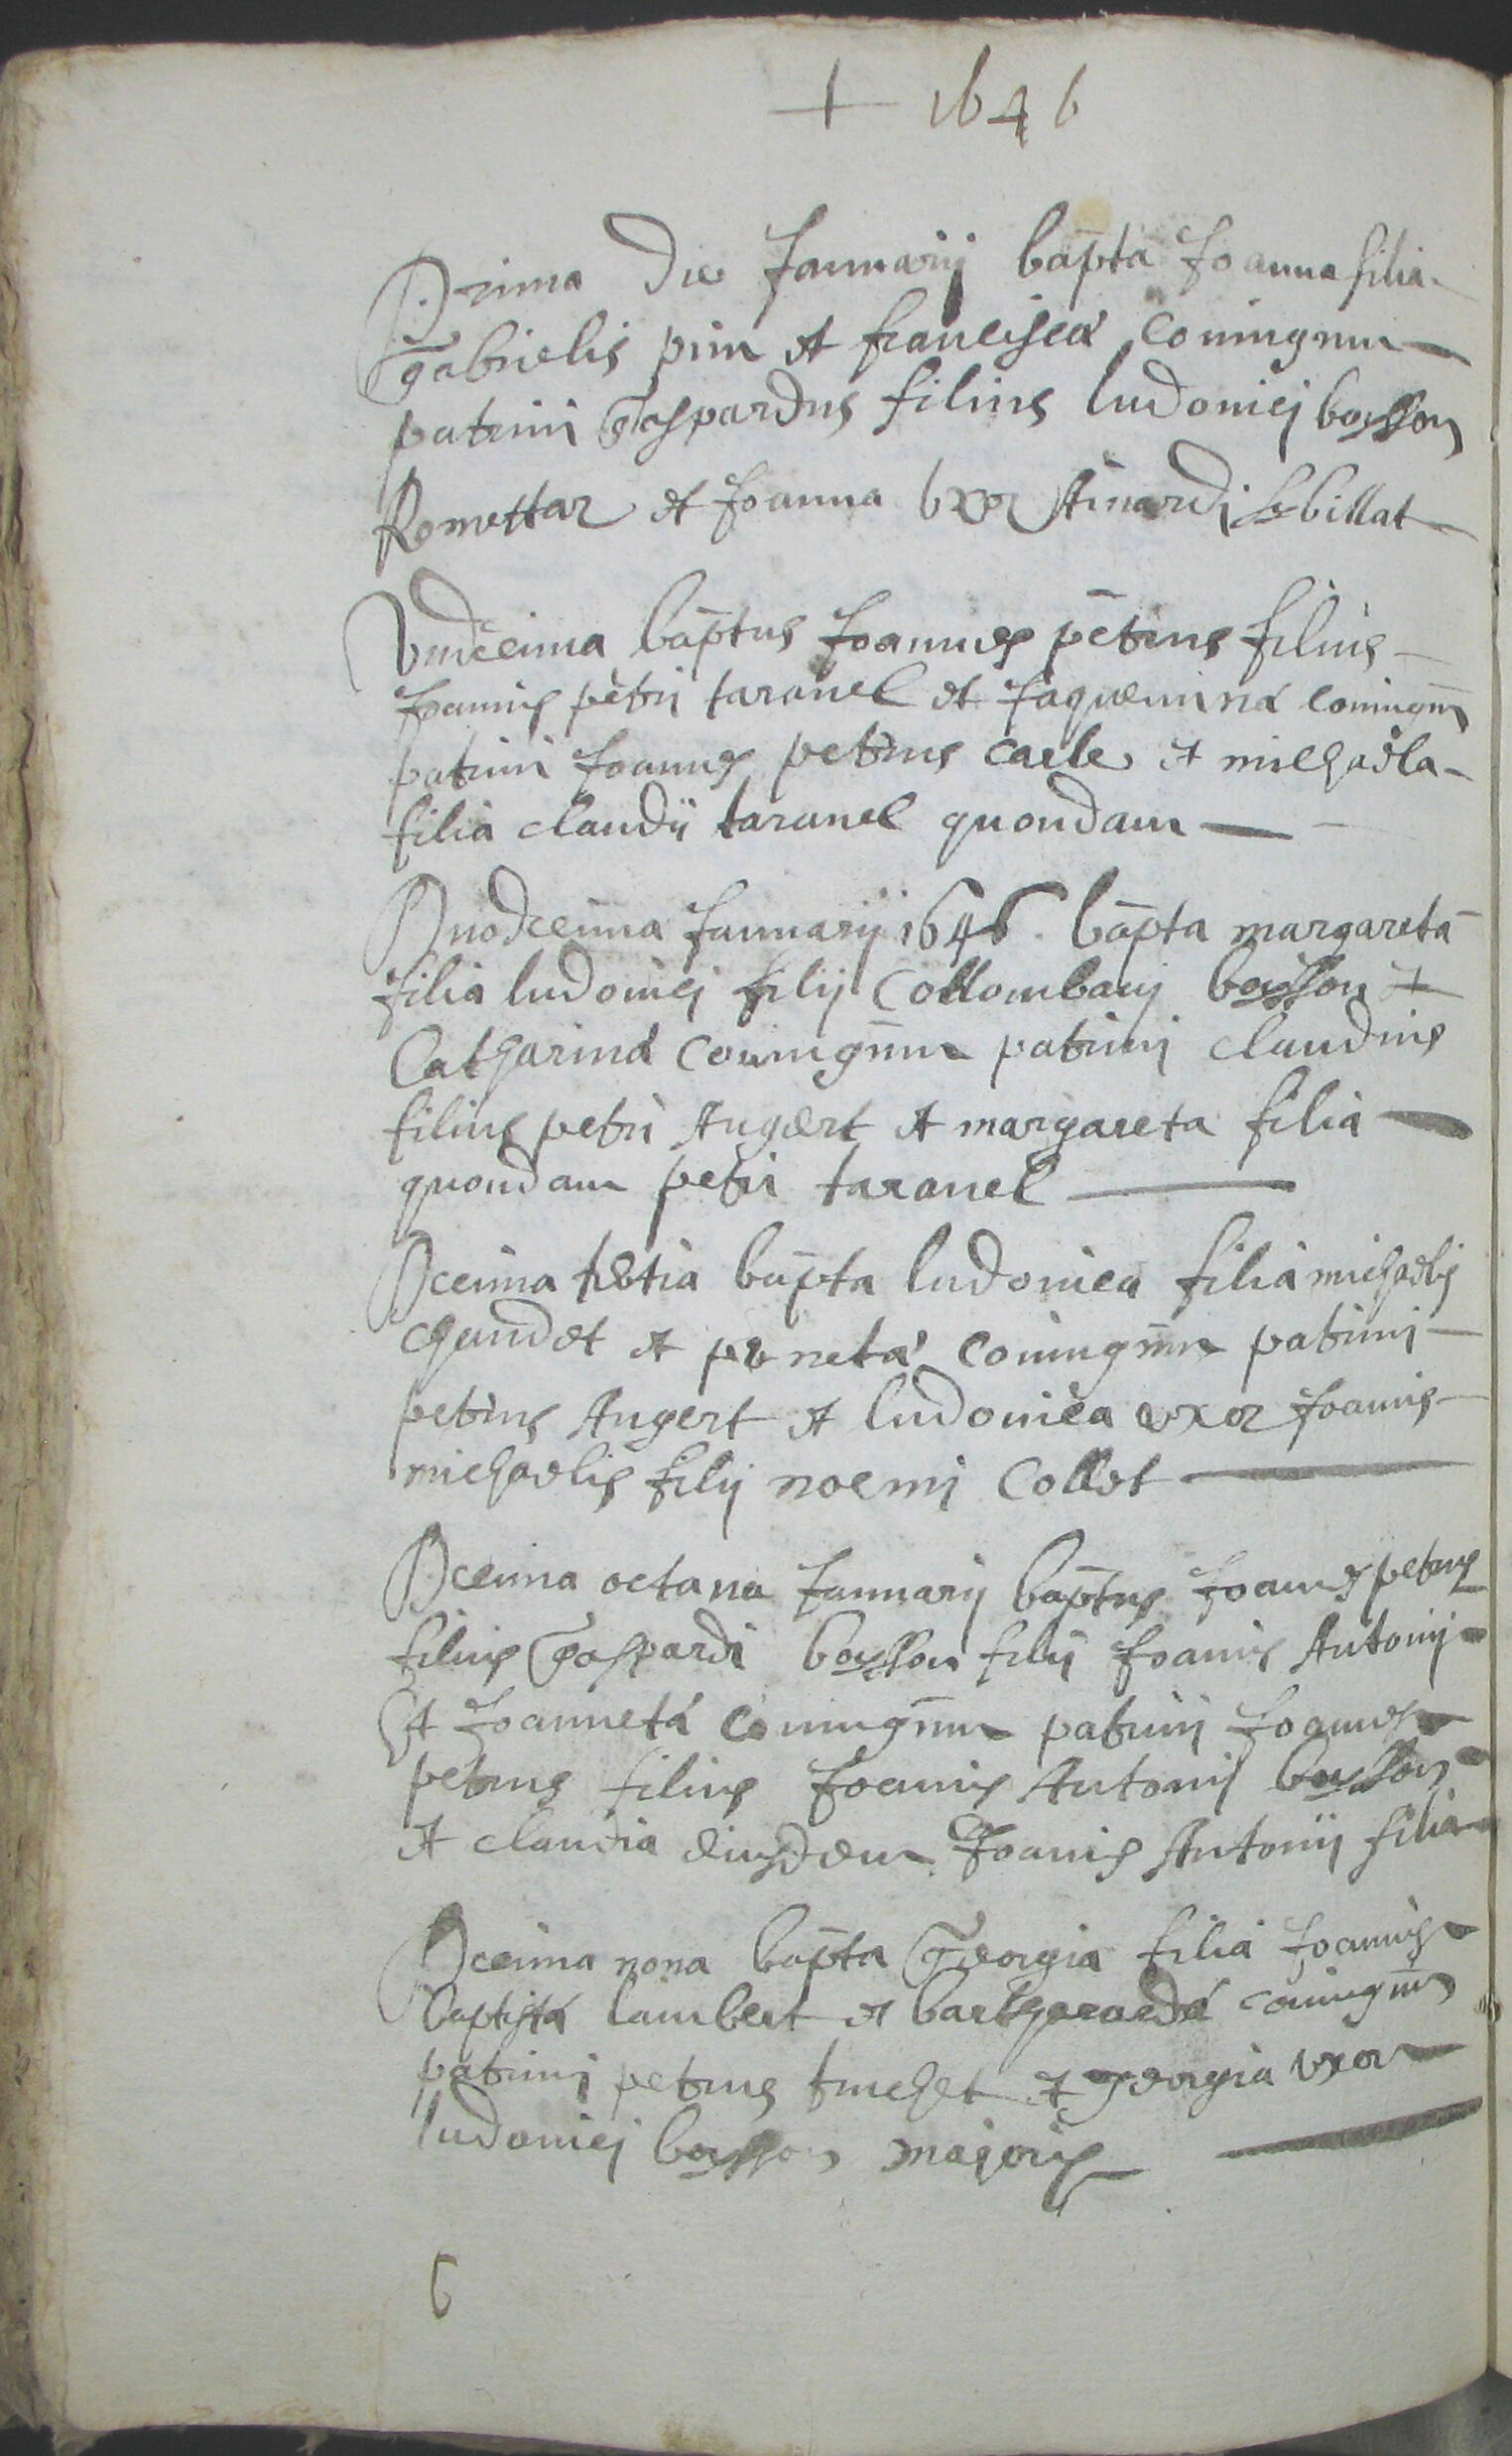 + 1646
Prima die Januarij bapta Joanna filia
gabrielis pin et francisca coniugum
patrini gaspardus filius ludovici bosson
Romettar et Joanna vxor Ainardi sebillat
Vndecima baptus Joannes petrus filius
Joannis petri taravel et Jaquemina coniugū
patrini Joannes petrus carle et michaela
filia claudii taravel quondam
Duodecima Januarij 1646. bapta margareta
filia ludovici filij Collombanj bosson et
Catharina coniugūm patrinj claudius
filius petri Augert et margareta filia
quondam petri taravel
Decima tertia bapta ludovica filia michaelis
chaudet et perneta coniugūm patrini
petrus Augert et ludovica vxor Joannis
michaelis filij noemj Collet
Decima octava Januarij baptus Joannes petrus
filius gaspardi bosson filii Joannis Antonij
et Joanneta coniugūm patrinj Joannes
petrus filius Joannis Antonij bosson
et claudia eiusdem Joannis Antonii filia
Decima nona bapta georgia filia Joannis
baptista lambert et coniugūm
patrinj petrus truchet et georgia vxor
ludovici bosson majoris
6